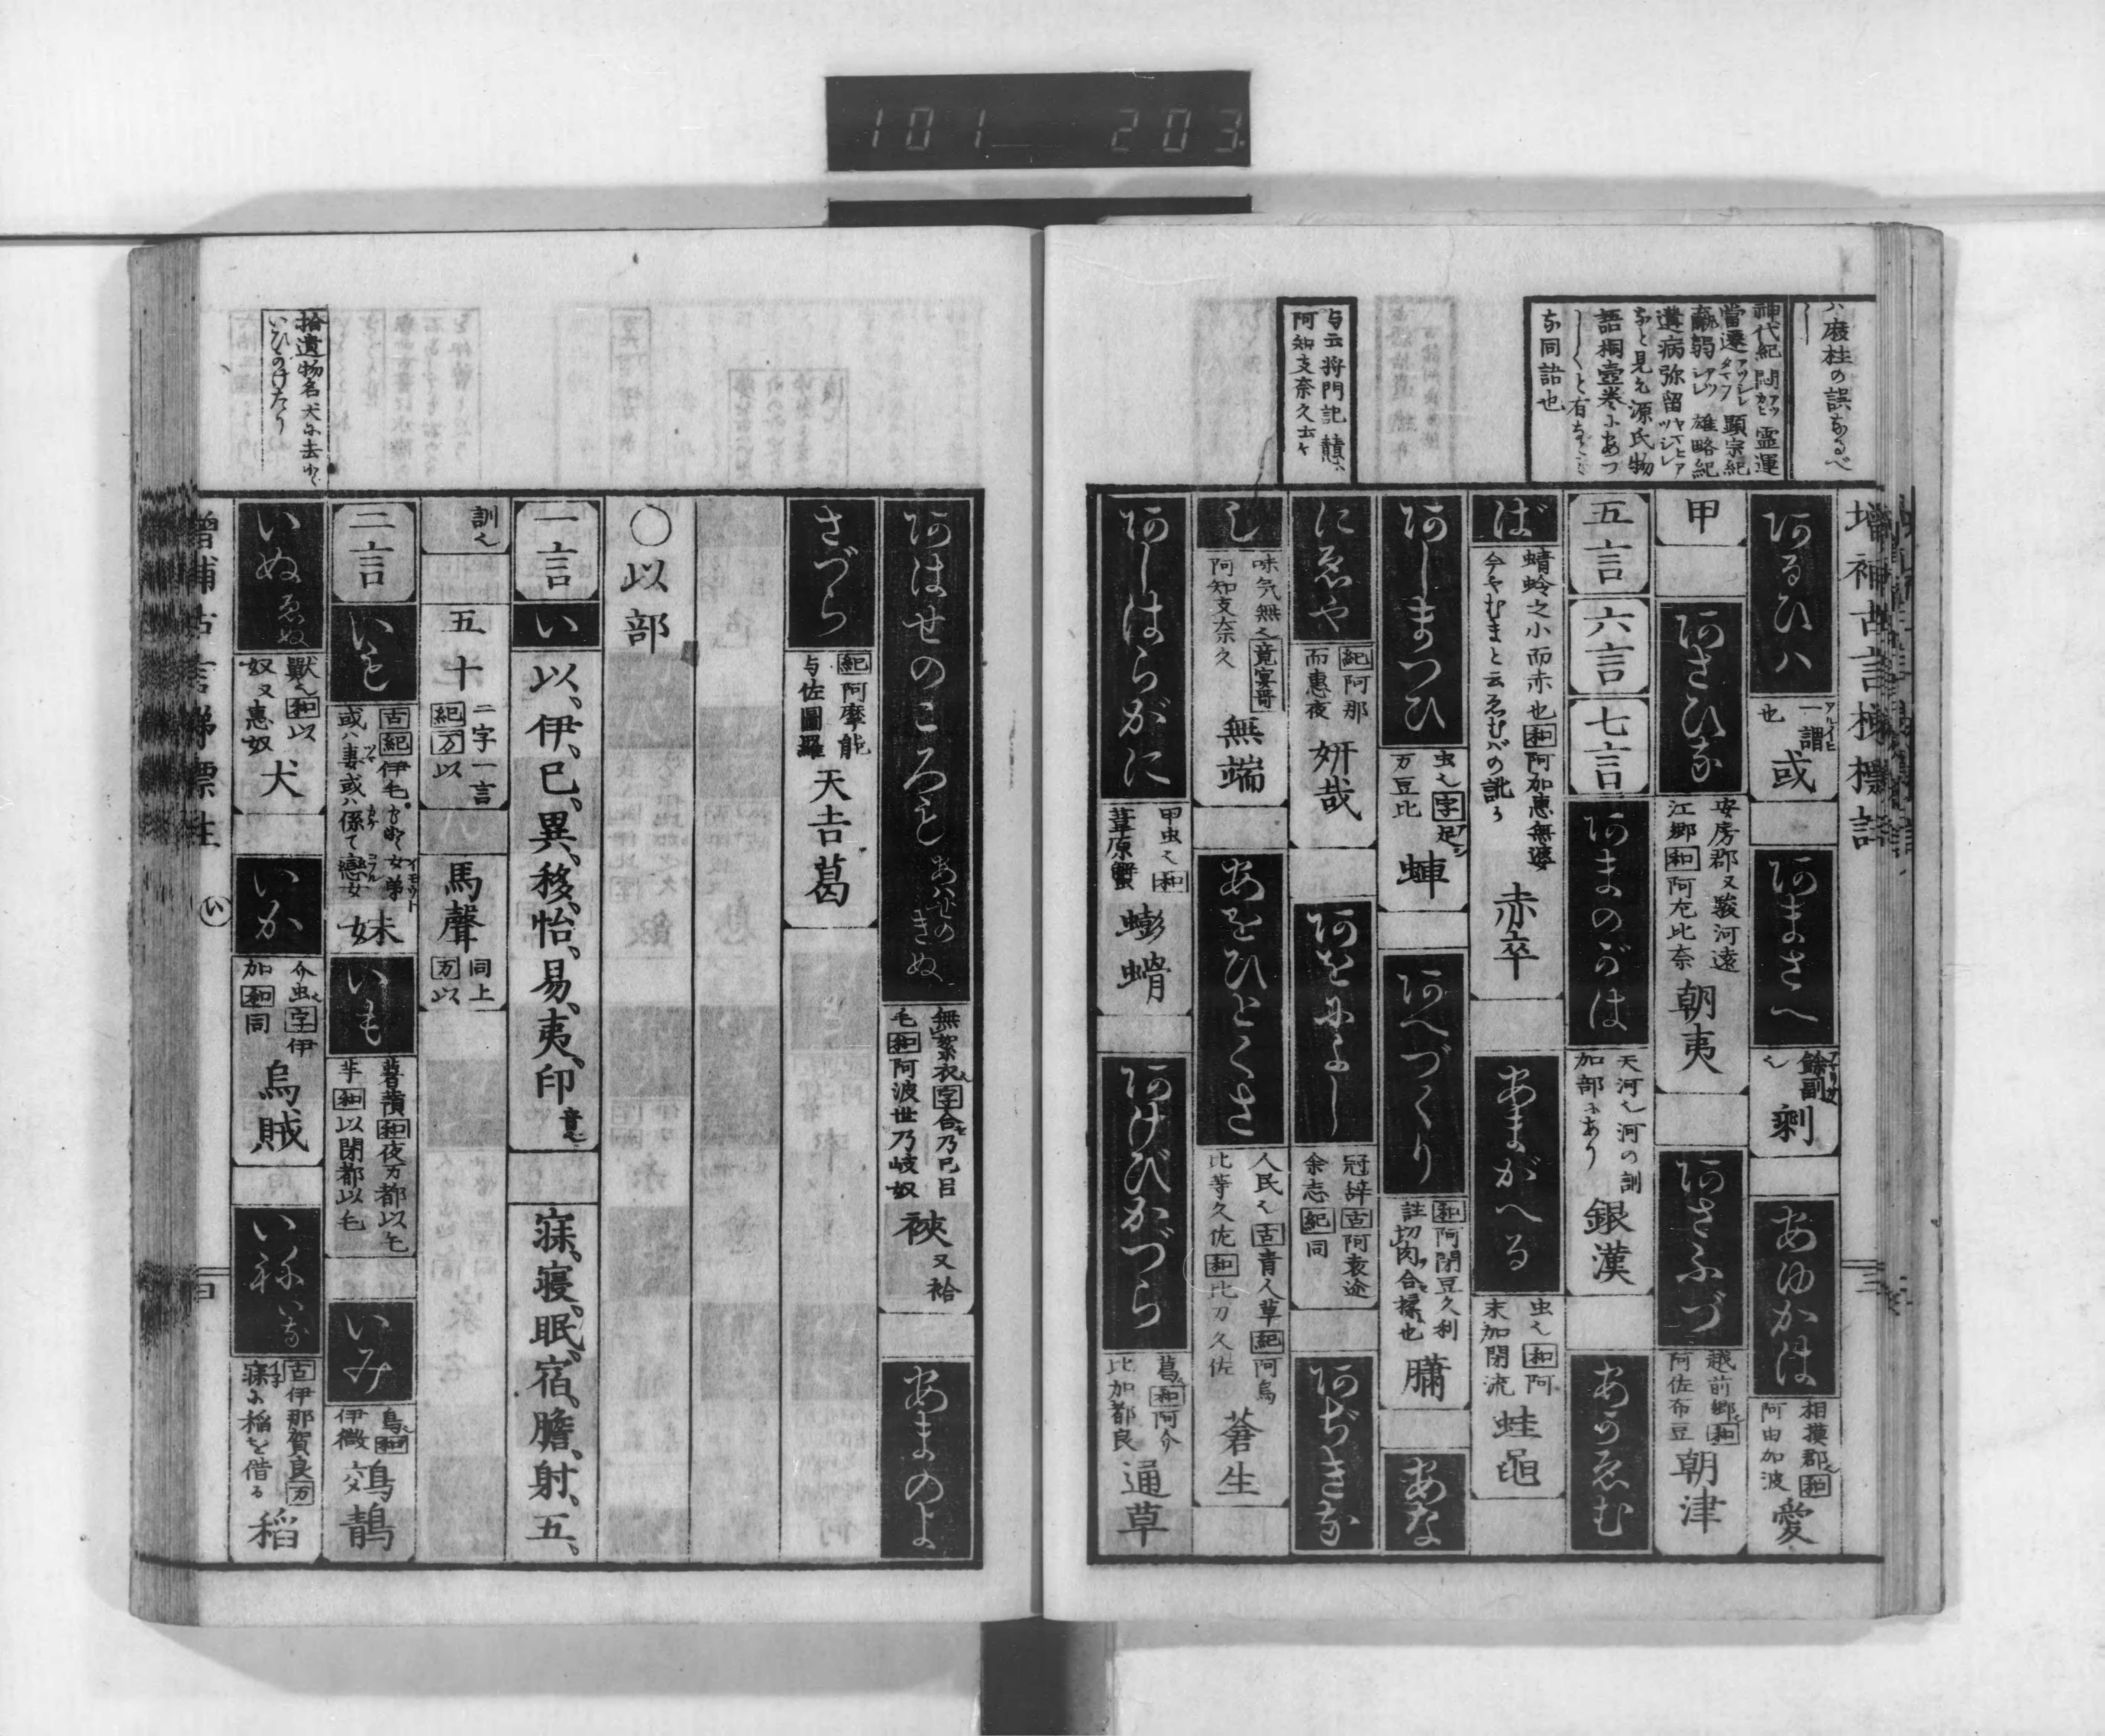 101 203
増補古言梯標註
ハ麻柱の誤なるべ
し
神代紀 閼 霊運
當遷 顕宗紀
羸弱 雄略紀
遘病弥留
など見え源氏物
語桐壺巻にあつ
しくと有
な同語也
与云将門記 
阿知支奈久云々
あるひハ
一謂 也 或
あまさへ
餘副 剰
あゆかは
相摸郡 和 阿由加波 愛
甲
あさひな
安房郡又駿河遠
江郷 和 阿左比奈 朝夷
あさふづ
越前郷 和 阿佐布豆 朝津
五言 六言 七言
あまのがは
天河 河の訓
加部にあり 銀漢
あかゑむ
ば
蜻蛉之小而赤也 和 阿加恵無婆
今やむまと云ゑむバの訛 赤卒
あまがへる
虫 和 阿
末加閉流 蛙黽
あしまつひ
虫 字 足
万豆比 蛼
あへづくり
和 阿閉豆久利
註切肉合糅也 膅
あな
にゑや
紀 阿那
而恵夜 妍哉
あをによし
冠辞 古 阿袁途
余志 紀 同
あぢきな
し
味気無 竟宴哥
阿知支奈久 無端
あをひとくさ
人民 古 青人草 紀 阿烏
比等久佐 和 比刀久佐 蒼生
あしはらがに
甲虫 和
葦原蟹 蟛螖
あけびかづら
葛 和 阿介
比加都良 通草
あはせのころも あハせのきぬ
無絮衣 字 合乃己呂
毛 和 阿波世乃岐奴 袷 又 袷
あまのよ
さづら
紀 阿摩能
与佐圖羅 天吉葛
〇以部
一言
い
以、伊、已、異、移、怡、易、夷、印 音
寐、寝、眠、宿、膽、射、五、
訓
五十
二字一言
紀 万 以
馬聲
同上
万 以
二言
いも
古 紀 伊毛 女弟
或ハ妻或ハ係て戀女 妹
いも
薯蕷 和 夜万都以毛
芋 和 以閉都以毛
いみ
鳥 和
伊微 鵁鶄
拾遺物名犬に去
いひかのけたり
いぬ ゑぬ
獣 和 以
奴又恵奴 犬
いか
介虫 字 伊
加 和 同 烏賊
いね いな
古 伊那賀良 万
寐に稲を借る 稲
増補古言梯標註 い